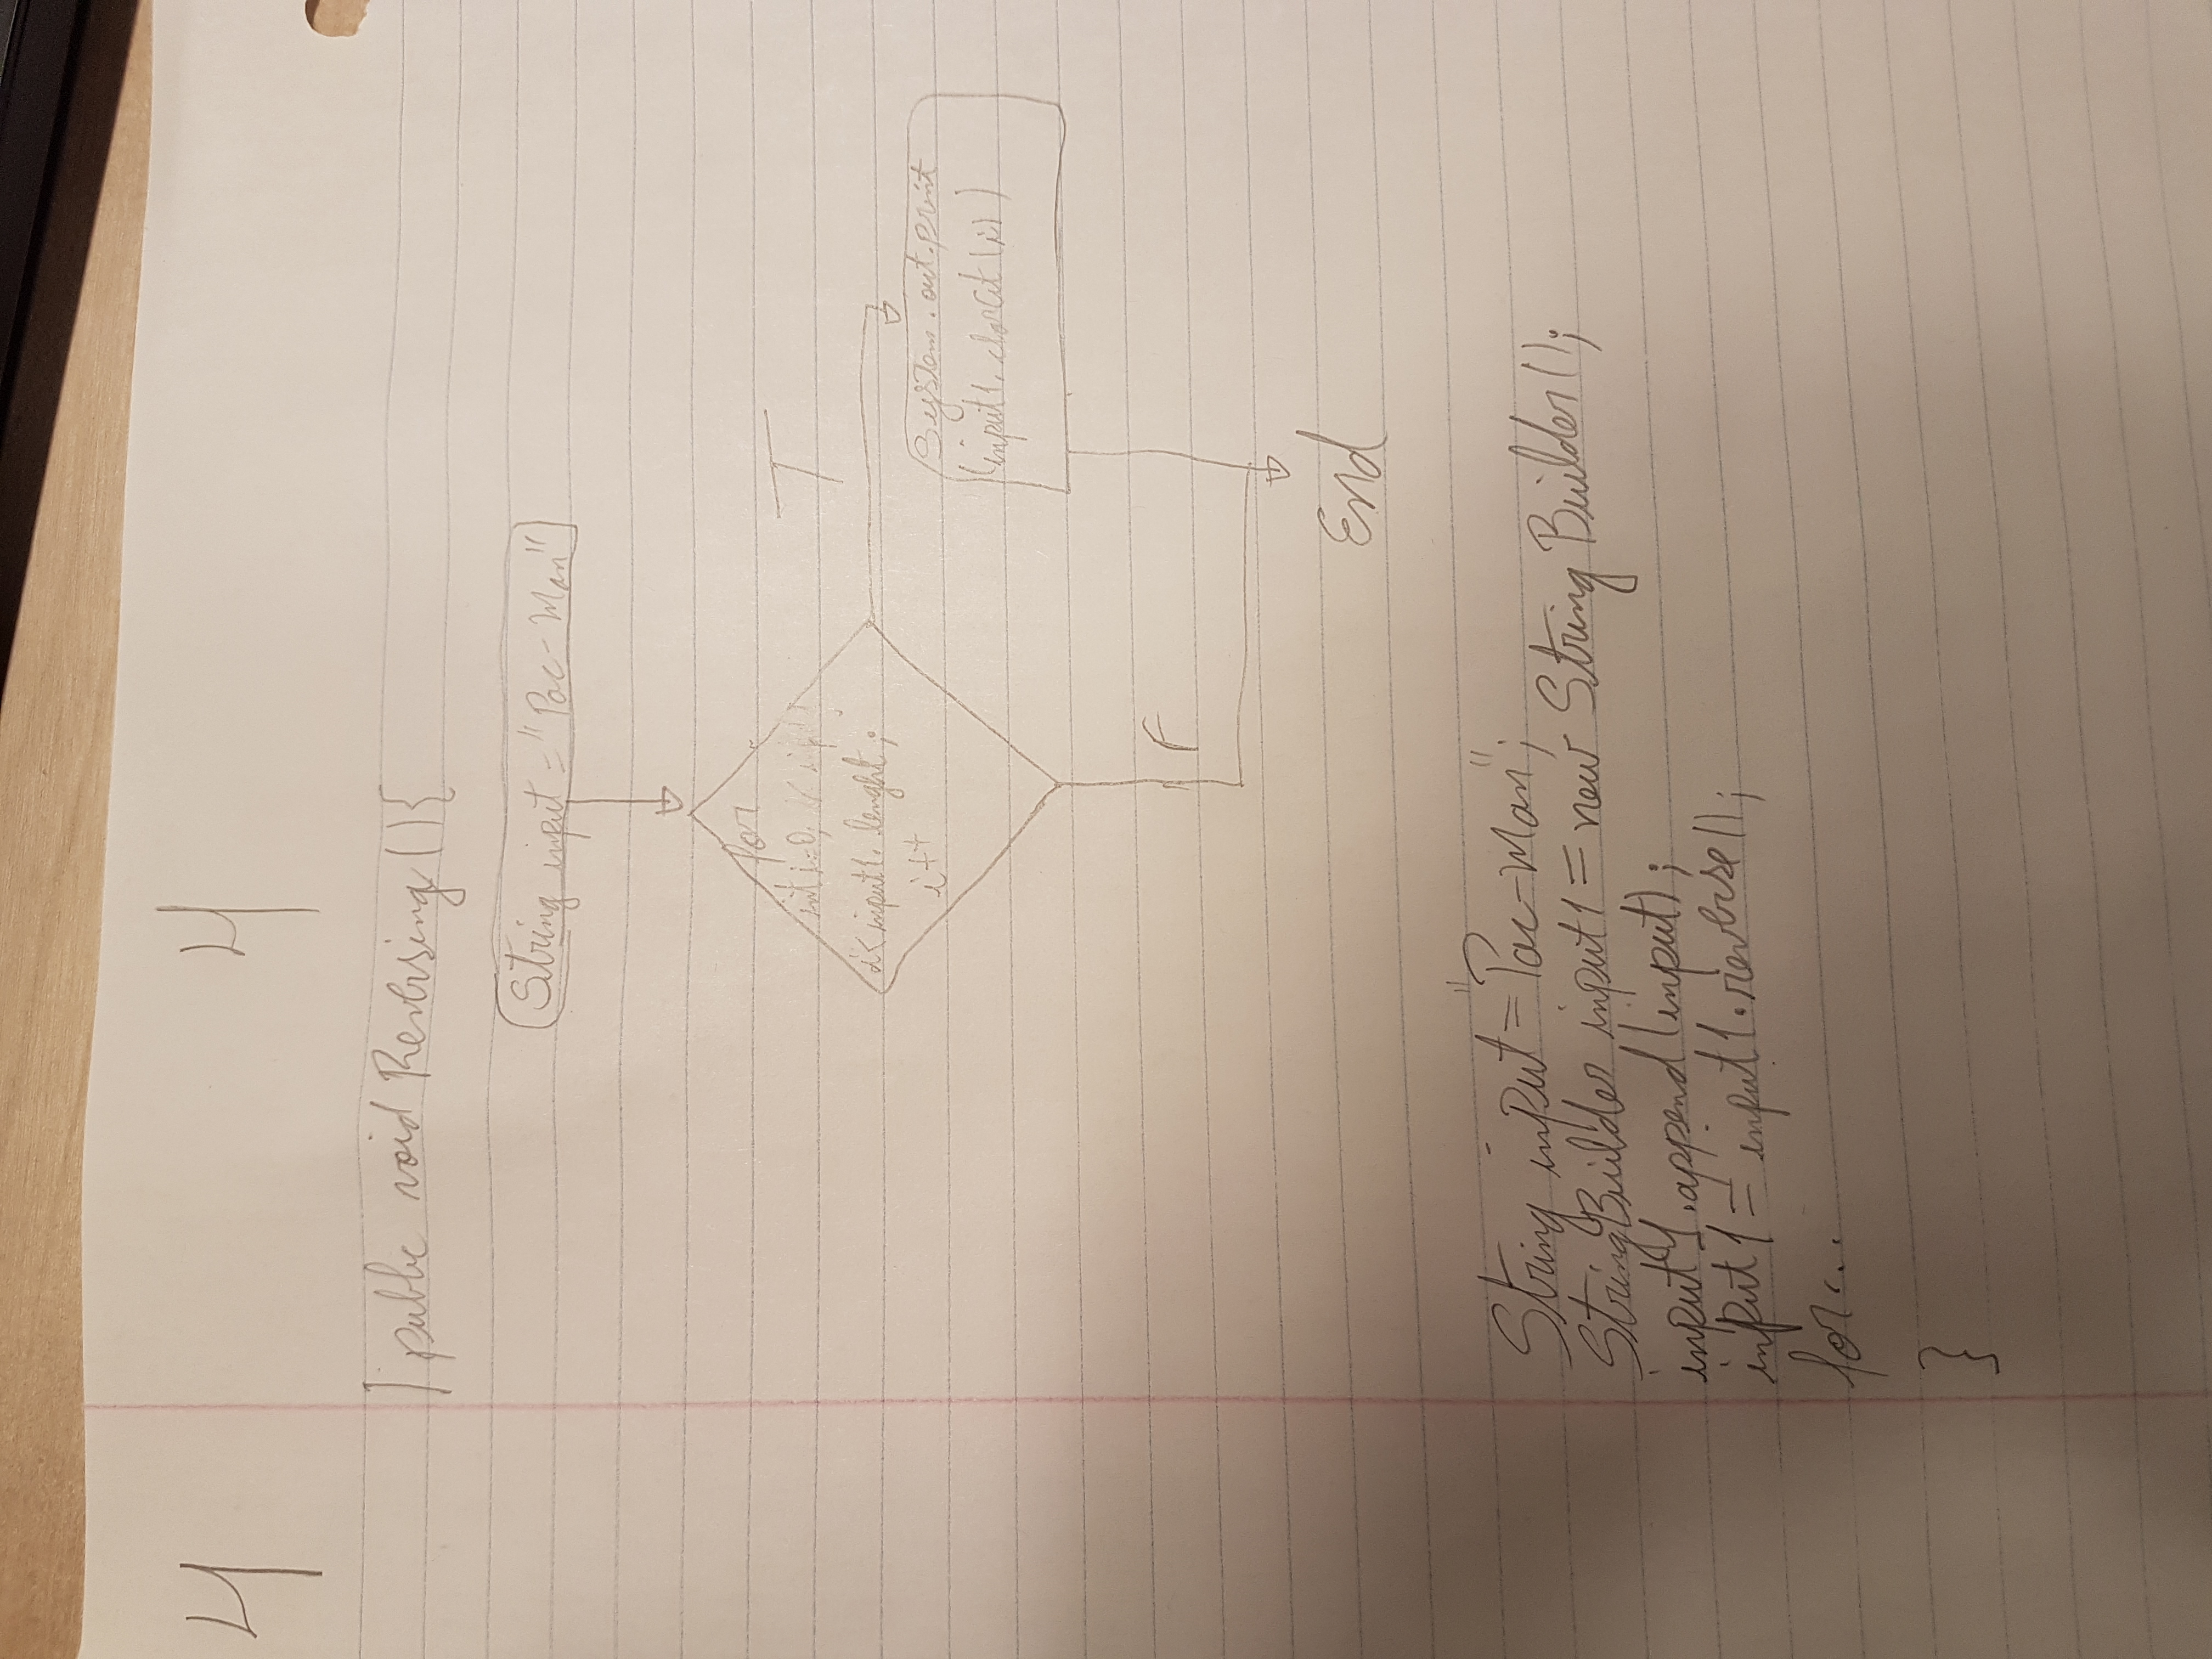 4 4
public void Reversing(){
String input = "Pac-Man"
for
int i=0;
i<input1.lenght;
i++
T
System.out.print
(input1.charAt(i))
F
End
String input = "Pac-Man";
StringBuilder input1 = new StringBuilder();
input1.append(input);
input1 = input1.reverse();
for...
}